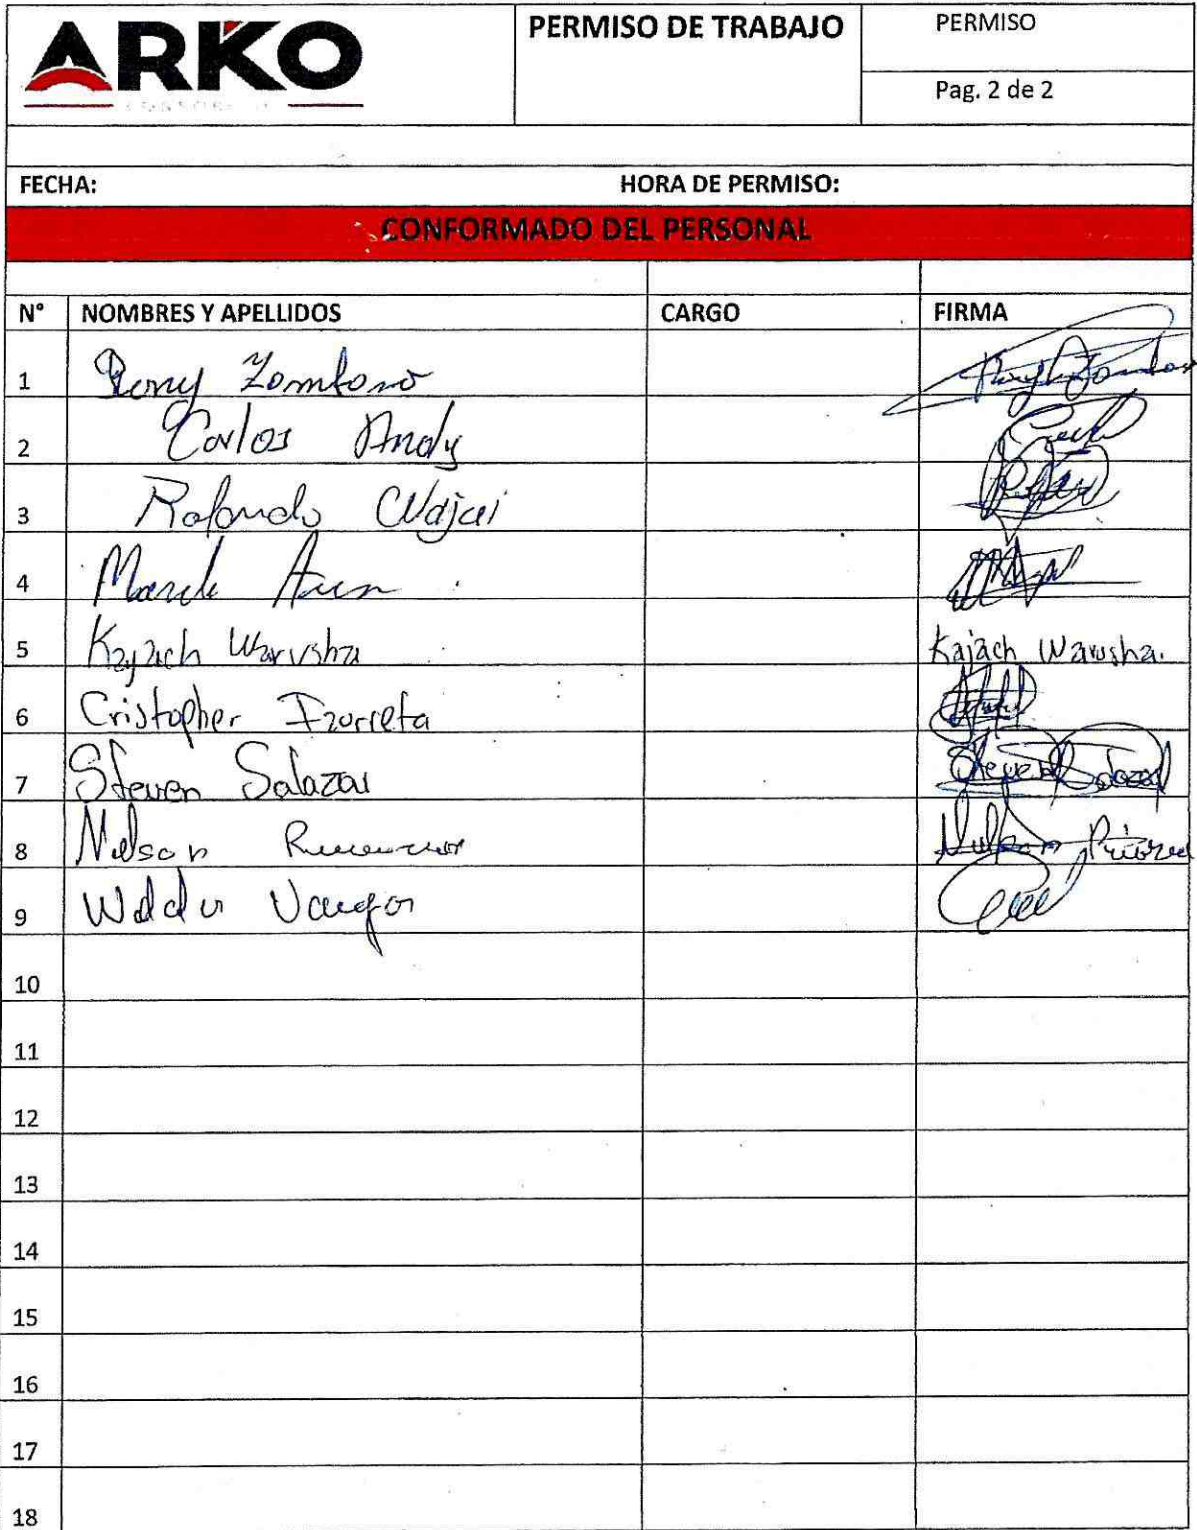 ARKO
CONSORCIO
PERMISO DE TRABAJO
PERMISO
Pag. 2 de 2
FECHA: HORA DE PERMISO:
CONFORMADO DEL PERSONAL
N° NOMBRES Y APELLIDOS CARGO FIRMA
1 Rony Zambrano
2 Carlos Andy
3 Rolando
4
5 Kajach Warusha Kajach Warusha.
6 Cristopher Izurieta
7 Steven Salazar Steven Salazar
8 Nelson
9
10
11
12
13
14
15
16
17
18